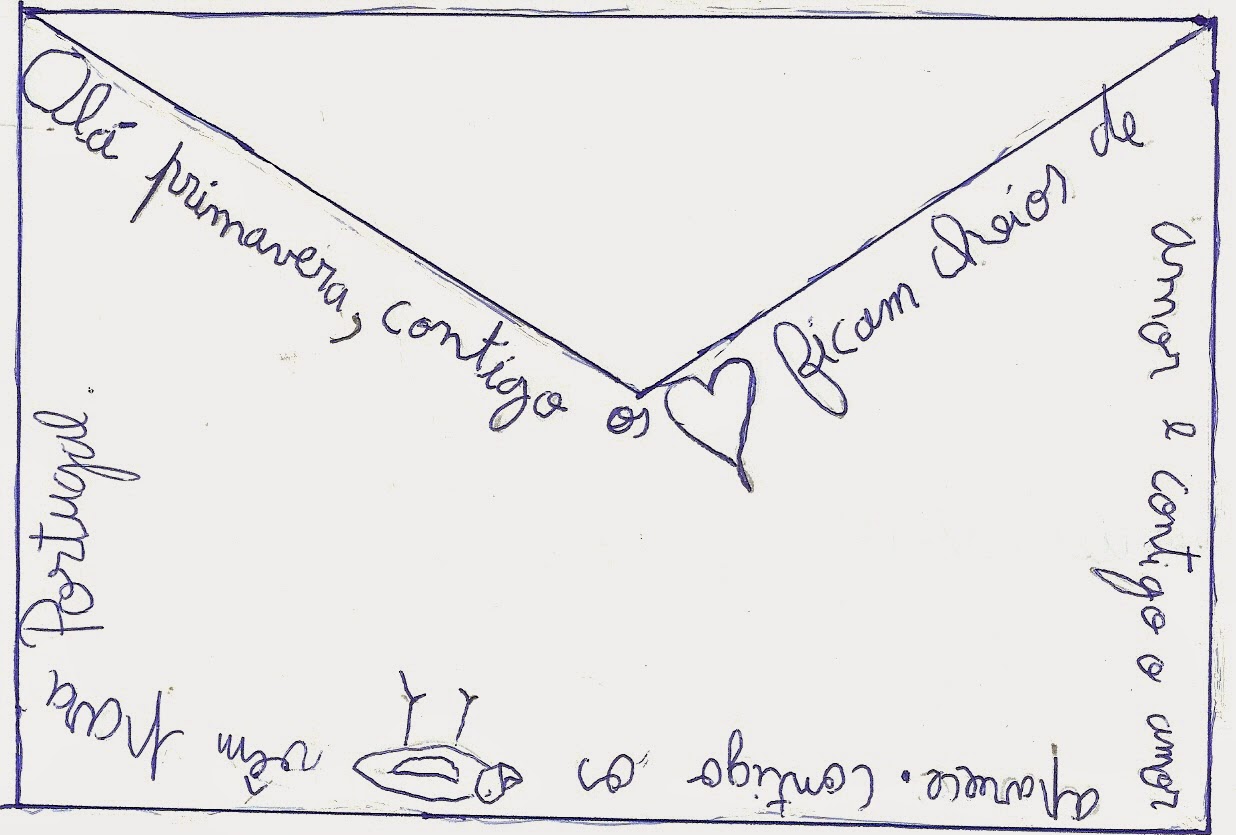 Olá primavera, contigo os ficam cheios de
amor e contigo o amor
aparece. Contigo os vêm para
Portugal.